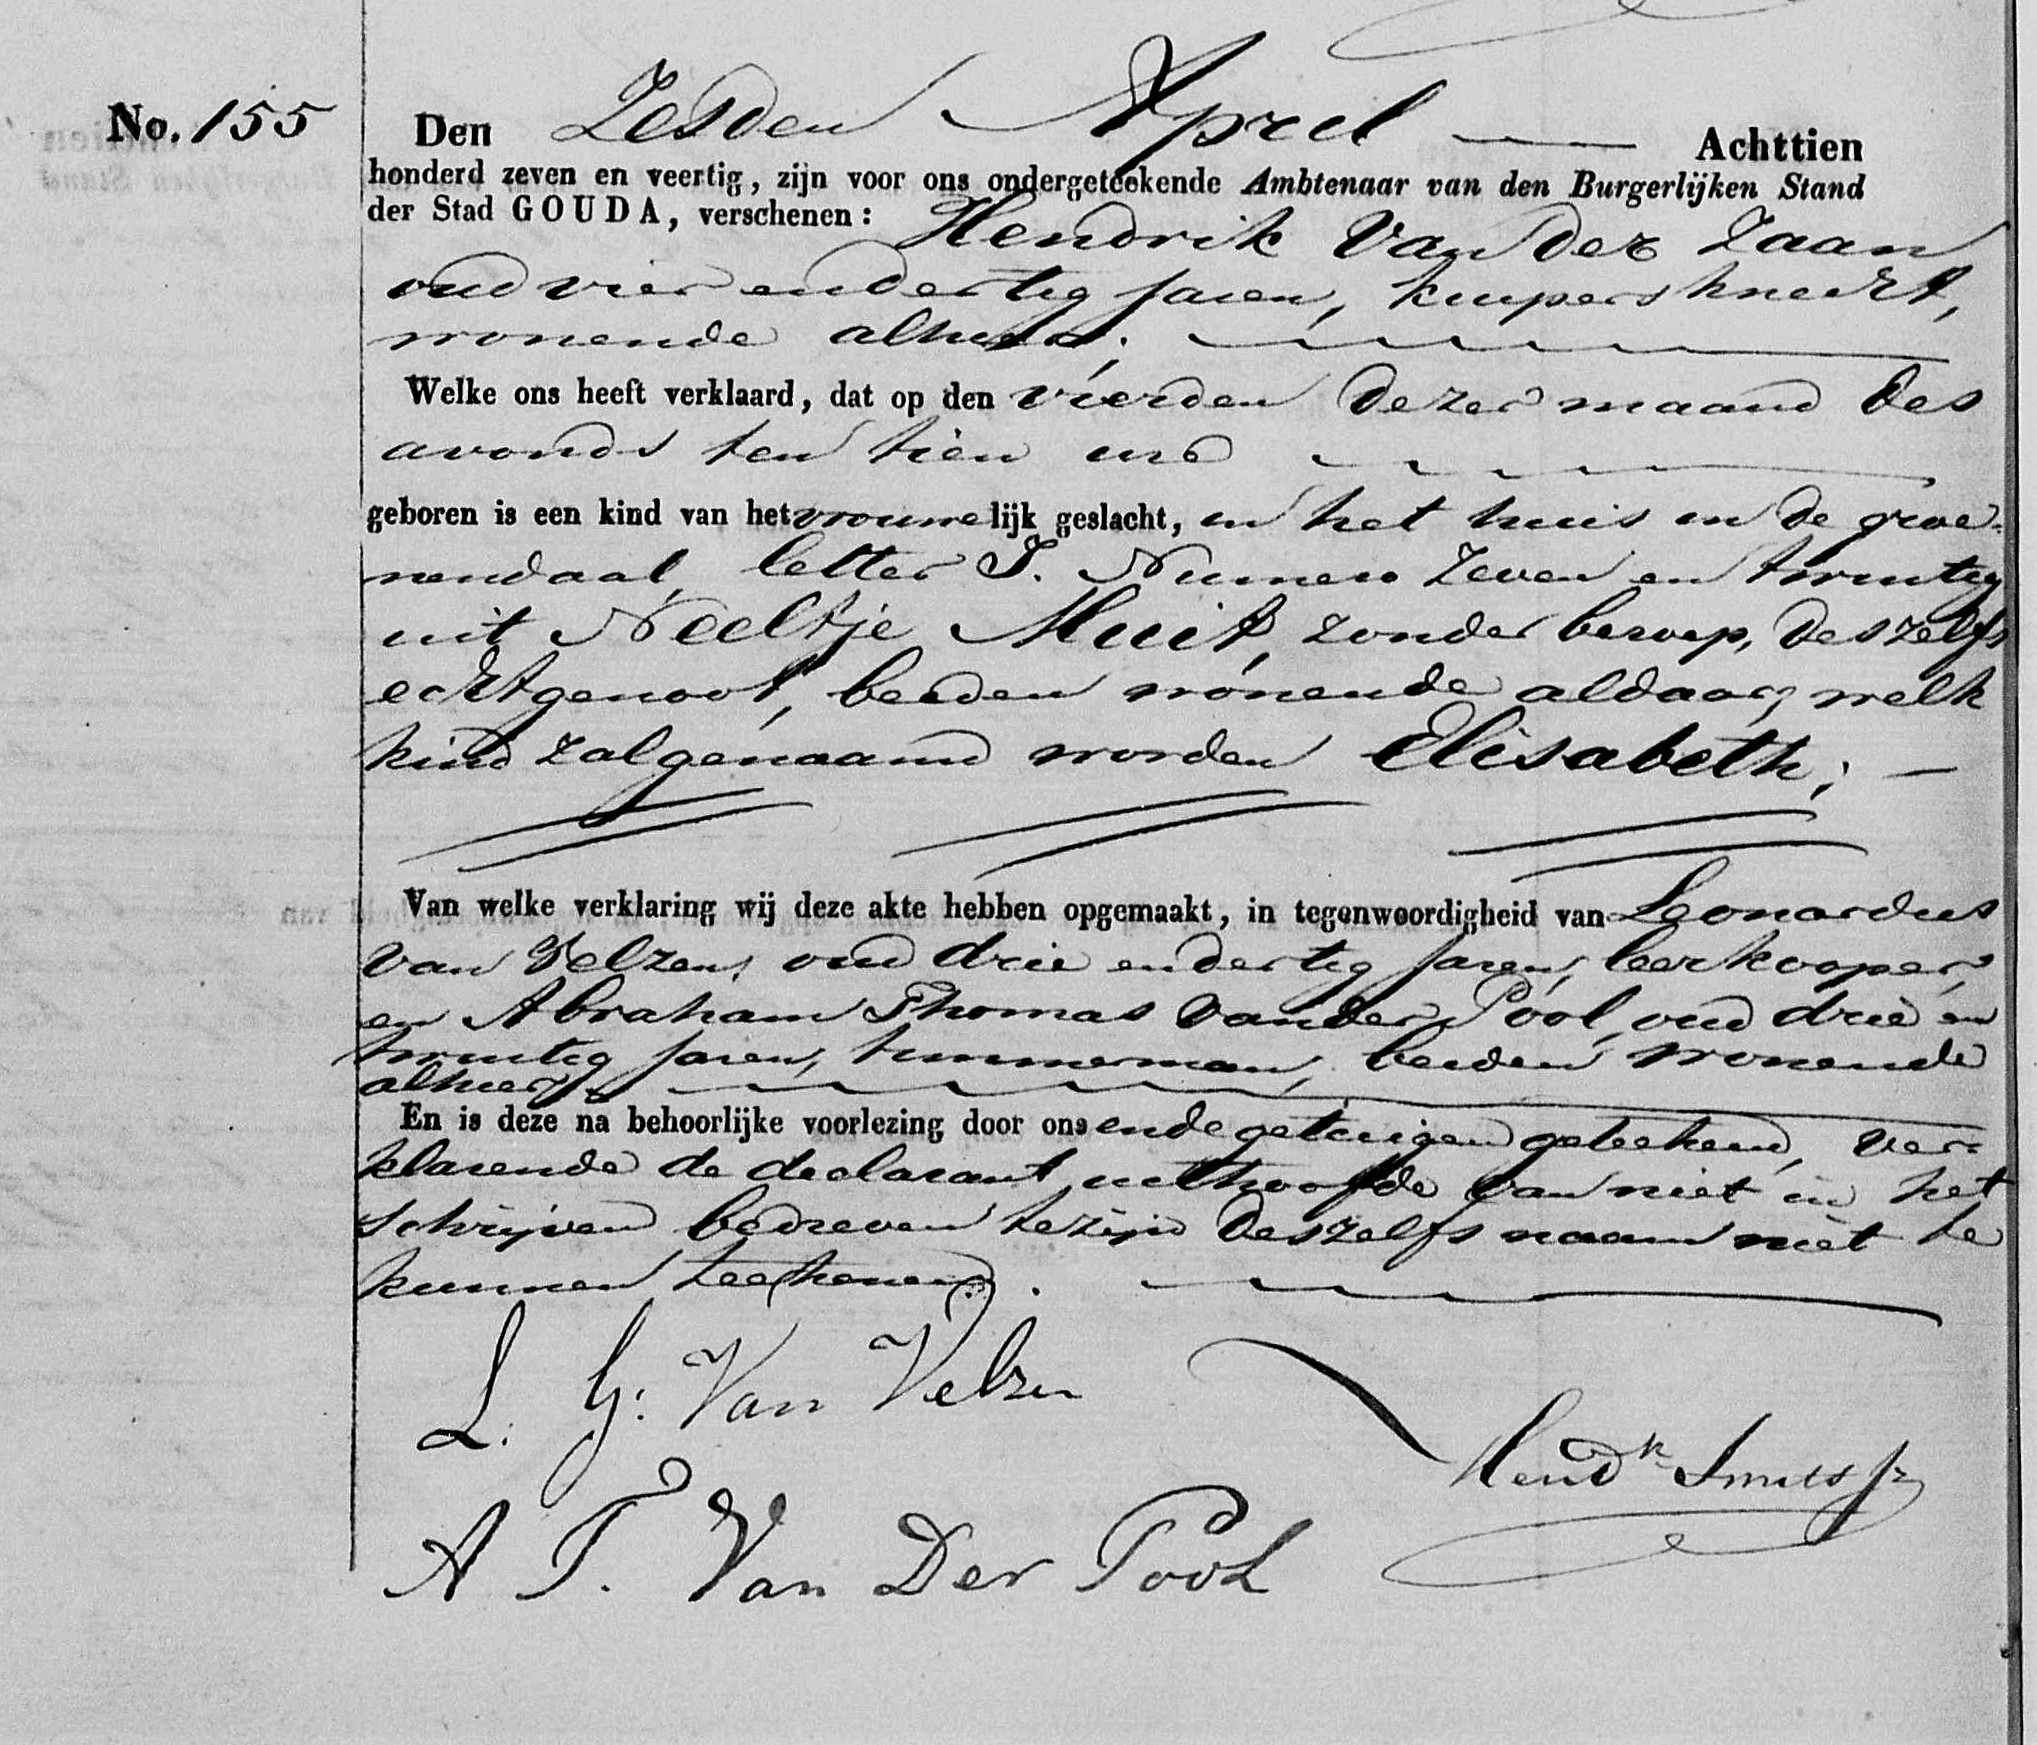 No. 155
Den Zesden April Achttien
honderd zeven en veertig, zijn voor ons ondergeteekende Ambtenaar van den Burgerlijken Stand
der Stad GOUDA, verschenen: Hendrik van der Zaan
oud vier en dertig jaren, kuipersknecht,
wonende alhier;
Welke ons heeft verklaard, dat op den vierden dezer maand des
avonds ten tien ure
geboren is een kind van het vrouwelijk geslacht, in het huis in de groe-
nendaal, letter I. Numero zeven en twintig
uit Neeltje Muit, zonder beroep, deszelfs
echtgenoot, beiden wonende aldaar, welk
kind zal genaamd worden Elisabeth;
Van welke verklaring wij deze akte hebben opgemaakt, in tegenwoordigheid van Leonardus
van Velzen, oud drie en dertig jaren, leerkooper,
en Abraham Thomas van der Pool, oud drie en
twintig jaren, timmerman, beiden wonende
alhier;
En is deze na behoorlijke voorlezing door ons en de getuigen geteekend, ver-
klarende de declarant uithoofde van niet in het
schrijven bedreven te zijn deszelfs naam niet te
kunnen teekenen.
L. G. Van Velzen
Hendk Smits Jr
A T. Van Der Pool